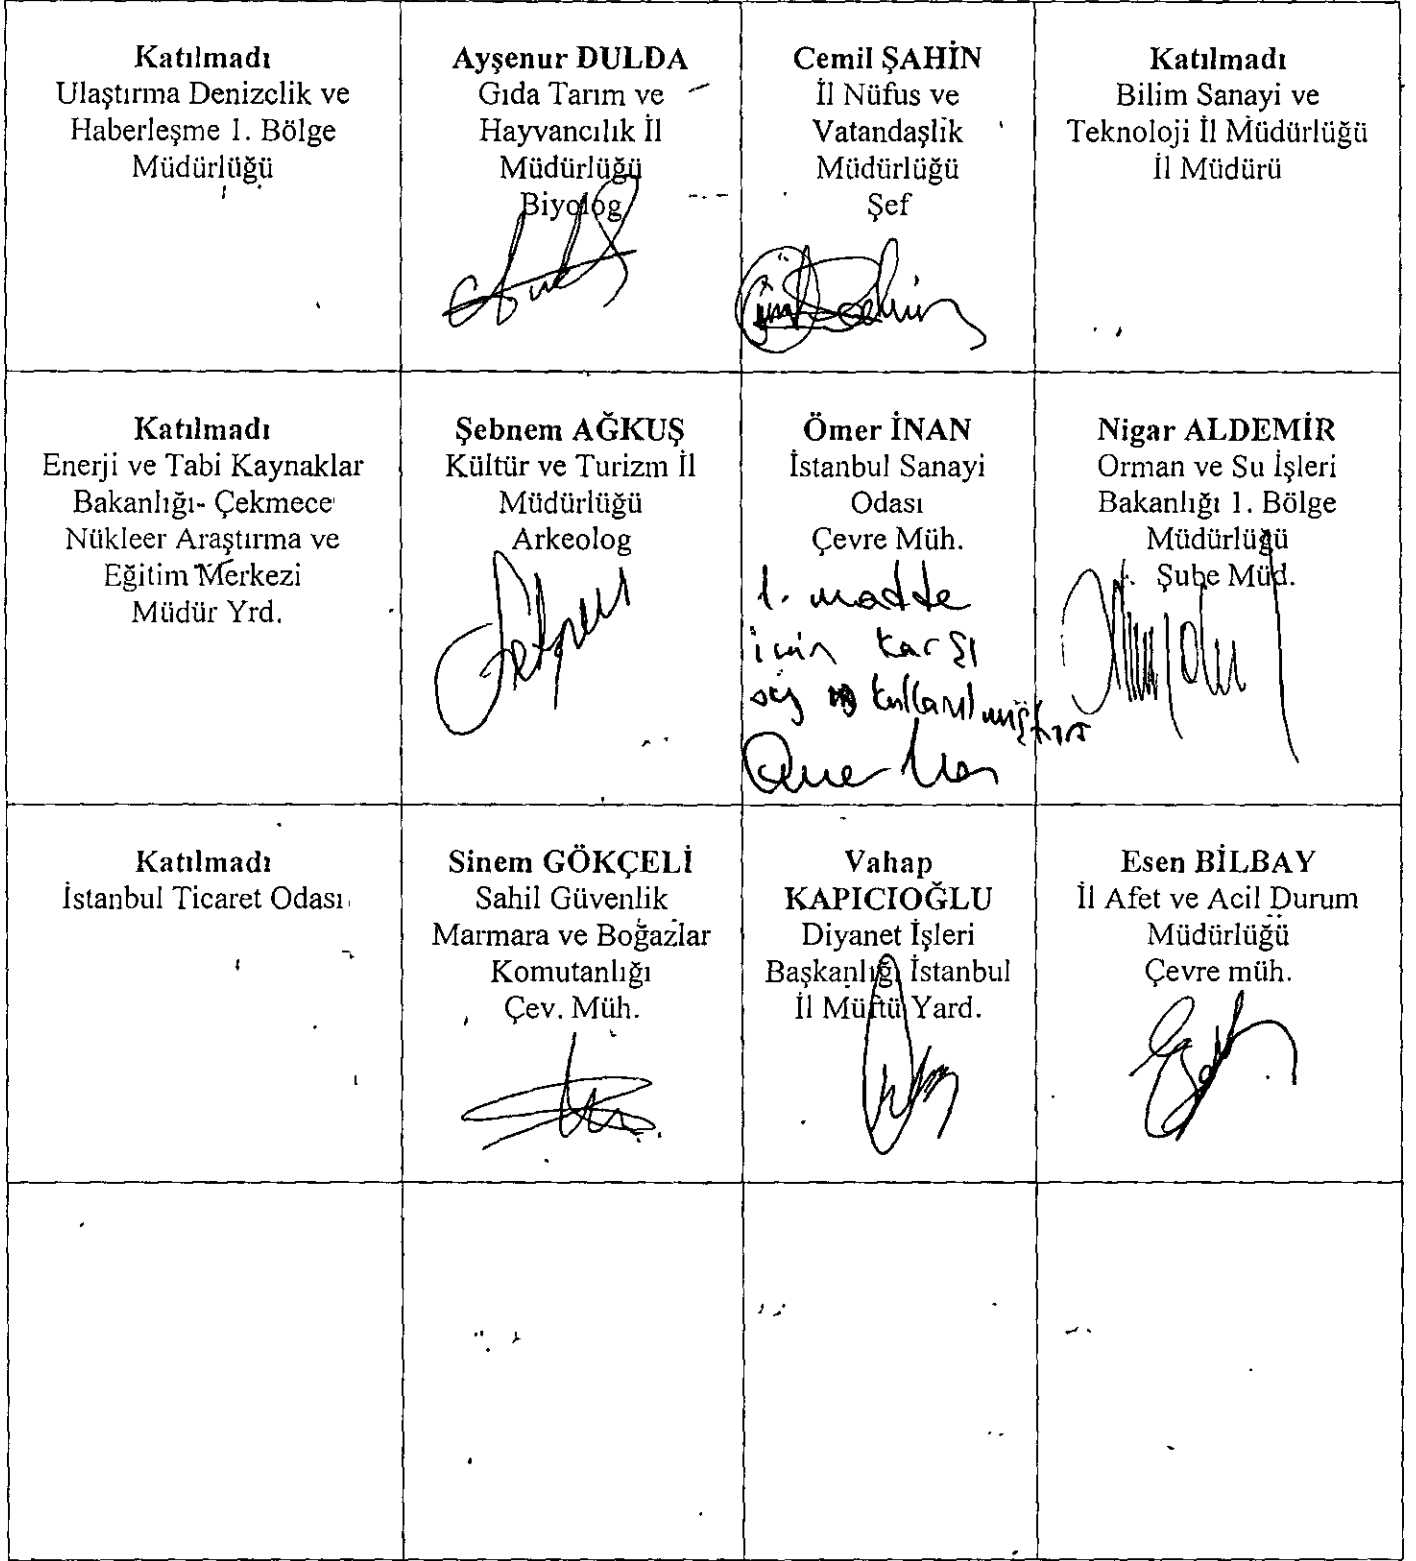 Katılmadı
Ulaştırma Denizclik ve
Haberleşme 1. Bölge
Müdürlüğü
Ayşenur DULDA
Gıda Tarım ve
Hayvancılık İl
Müdürlüğü
Biyolog
Cemil ŞAHİN
İl Nüfus ve
Vatandaşlik
Müdürlüğü
Şef
Katılmadı
Bilim Sanayi ve
Teknoloji İl Müdürlüğü
İl Müdürü
Katılmadı
Enerji ve Tabi Kaynaklar
Bakanlığı- Çekmece
Nükleer Araştırma ve
Eğitim Merkezi
Müdür Yrd.
Şebnem AĞKUŞ
Kültür ve Turizm İl
Müdürlüğü
Arkeolog
Ömer İNAN
İstanbul Sanayi
Odası
Çevre Müh.
1. madde
için karşı
oy kullanılmıştır
Ömer İnan
Nigar ALDEMİR
Orman ve Su İşleri
Bakanlığı 1. Bölge
Müdürlüğü
Şube Müd.
Katılmadı
İstanbul Ticaret Odası
Sinem GÖKÇELİ
Sahil Güvenlik
Marmara ve Boğazlar
Komutanlığı
Çev. Müh.
Vahap
KAPICIOĞLU
Diyanet İşleri
Başkanlığı İstanbul
İl Müftü Yard.
Esen BİLBAY
İl Afet ve Acil Durum
Müdürlüğü
Çevre müh.